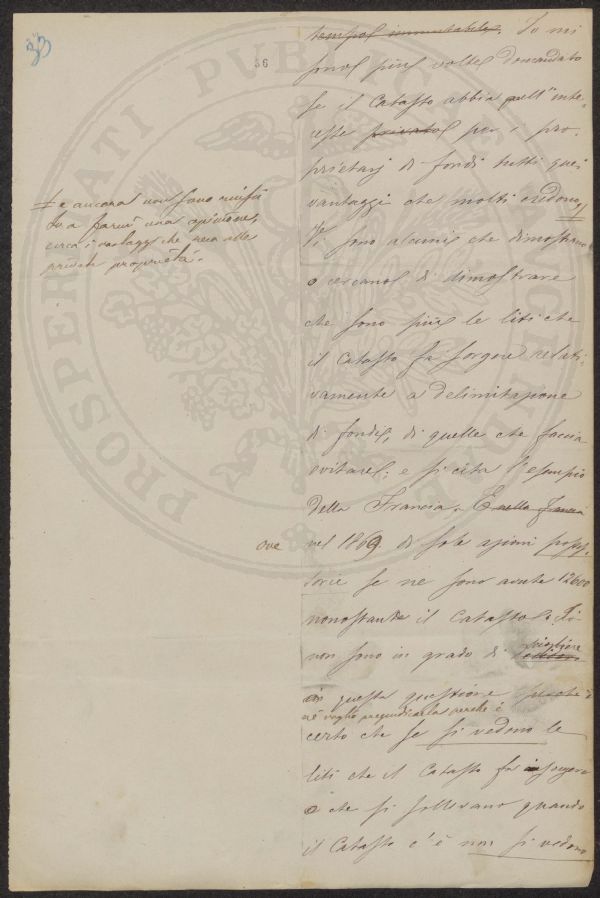 33
36
tempo immutabile. Io mi
sono più volte domandato
se il Catasto abbia quell'inte-
resse privato per i pro-
prietarj di fondi tutti quei
vantaggi che molti credono,
+ e ancora non sono riuscito
a farmi una opinione
circa i vantaggi che reca alle
private proprietà.
Vi sono alcuni che dimostrano
o cercano di dimostrare
che sono più le liti che
il Catasto fa sorgere relati-
vamente a delimitazione
di fondi, di quelle che faccia
evitare; e si cita l'esempio
della Francia. E nella Francia
ove nel 1869 di sole azioni posses-
sorie se ne sono avute 12600
nonostante il Catasto. Io
non sono in grado di sciogliere
questa questione perché è
nè voglio pregiudicarla perchè è
certo che se si vedono le
liti che il Catasto fa insorgere
o che si sollevano quando
il Catasto c'è non si vedono
PROSPERITATI PUBLICAE